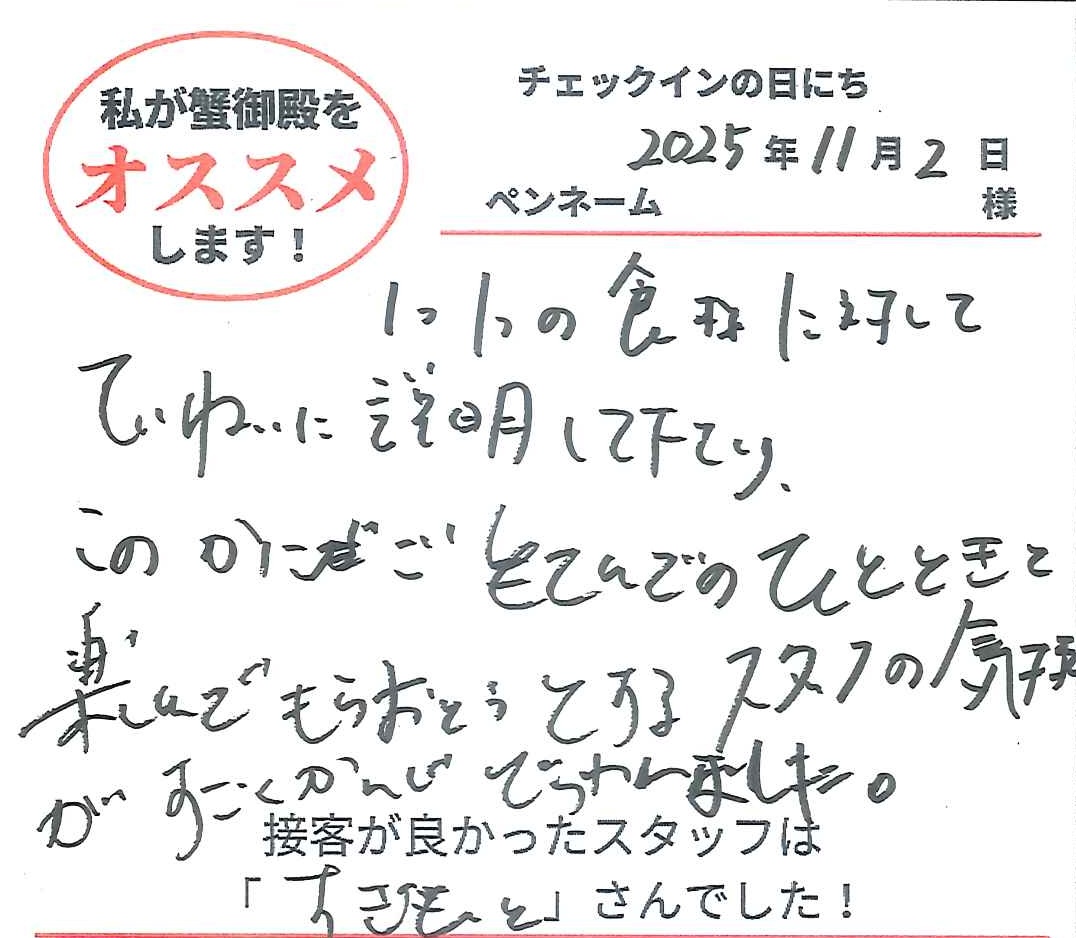 私が蟹御殿を
オススメ
します！
チェックインの日にち
2025年11月2日
ペンネーム 様
1つ1つの食材に対して
ていねいに説明して下さり、
このかに ごてんでのひとときを
楽しんでもらおうとするスタッフの気持
がすごくかんじ られました。
接客が良かったスタッフは
「 」さんでした！